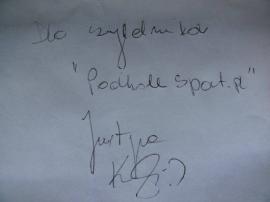 Dla czytelników
"Podhale Sport.pl"
Justyna